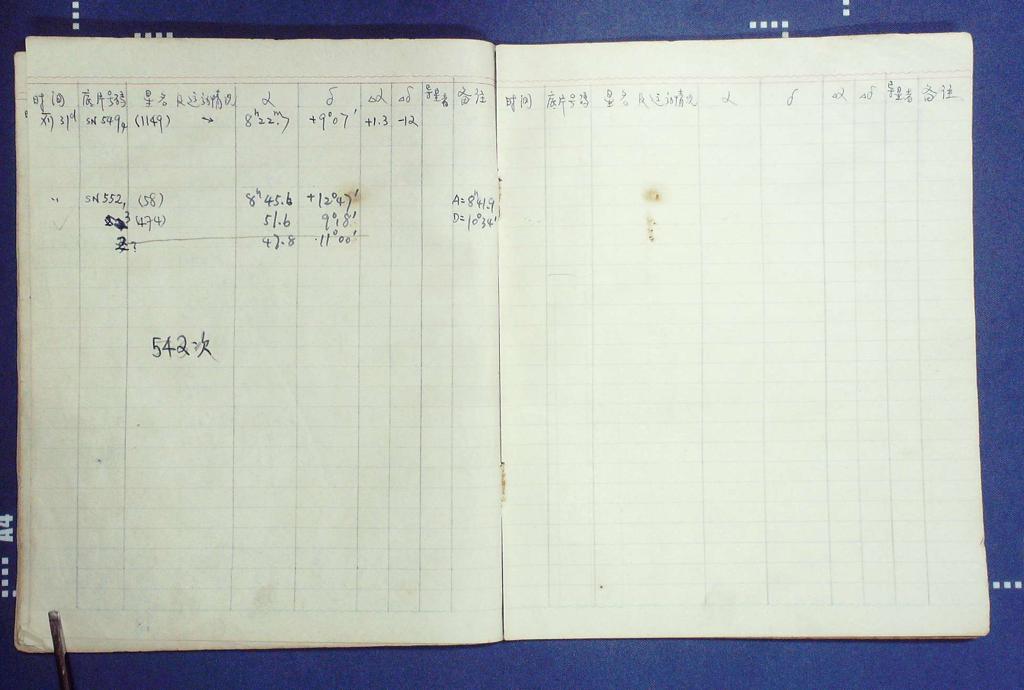 时间 底片号码 星名及运动情况 α δ Δα Δδ 导星者 备注
31ᵈ SN549₄ (1149) → 8ʰ22.ᵐ7 +9°07′ +1.3 -12
〃 SN552₁ (58) 8ʰ45.6 +12°47′ A=8ʰ41.9
(474) 51.6 9°18′ D=10°34′
2? 47.8 11°00′
542次
时间 底片号码 星名及运动情况 α δ Δα Δδ 导星者 备注
A4